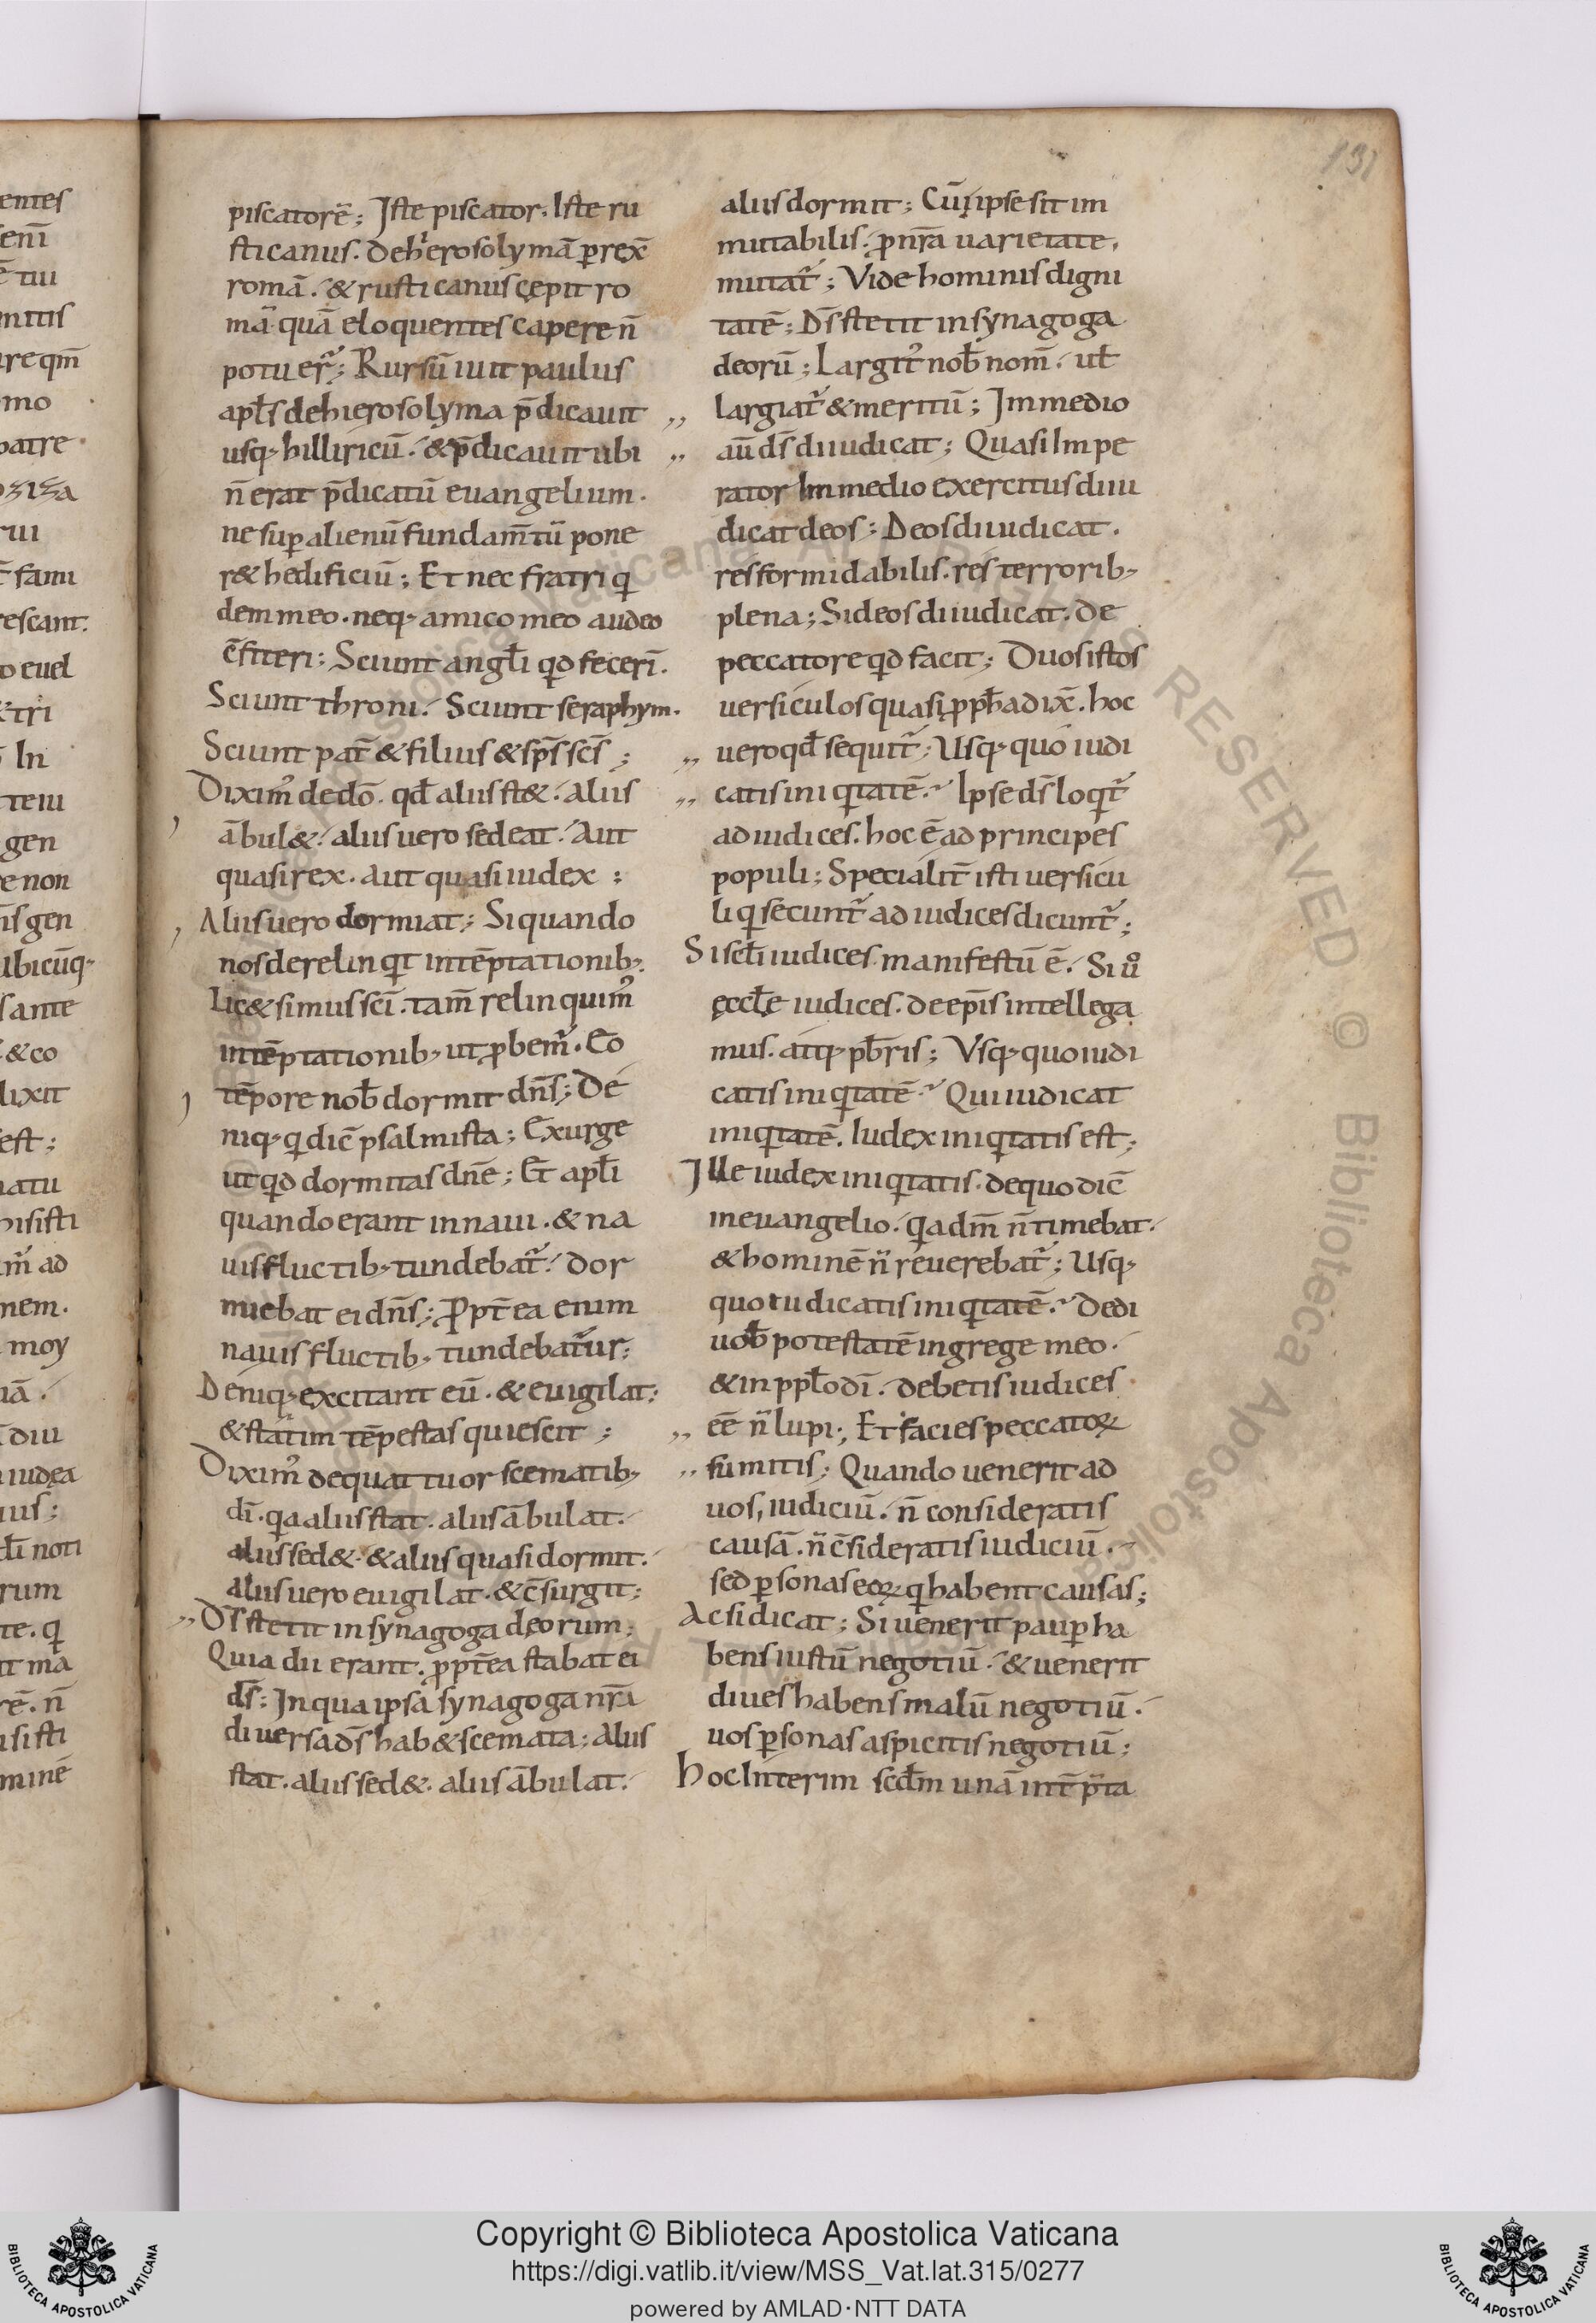 131
piscatorē; Iste piscator. Iste ru
sticanus. de hierosolymā prexͨ
romā. & rusticanus cępit ro
mā quā eloquentes capere n̄
potuer̄; Rursū iuit paulus
apl̄s de hierosolyma p̄dicauit
usq; hilliricū. & p̄dicauit ubi
n̄ erat p̄dicatū euangelium.
ne suꝑ alienū fundam̄tū pone
r& hedificiū; Et nec fratri q
dem meo. neq; amico meo audeo
c̄fiteri; Sciunt angl̄i qd fecerī.
Sciunt throni. Sciunt seraphym.
Sciunt pat̄ & filius & sp̄s sc̄s;
Diximꝰ de dō. qd̄ alius st&. alius
ābul&. alius uero sedeat. Aut
quasi rex. aut quasi iudex;
Alius uero dormiat; Si quando
nos derelinqt intēptationib;
Lic& simus scī. tam̄ relinquimꝰ
intēptationib; ut ꝓbem̄. Eo
tēpore nob̄ dormit dn̄s; De
niq; q dic̄ psalmista; Exurge
ut qd dormitas dn̄e; Et apl̄i
quando erant in naui. & na
uis fluctib; tundebat̄. dor
miebat ei dn̄s; Ꝓpt̄ea enim
nauis fluctib; tundebatur;
Deniq; excitant eū. & euigilat;
& statim tēpestas quiescit;
Diximꝰ de quattuor scematib;
dī. qa alius stat. alius ābulat.
alius sed&. & alius quasi dormit.
alius uero euigilat. & c̄surgit;
Ds̄ stetit in synagoga deorum;
Quia dii erant. ꝓpt̄ea stabat ei
ds̄; In qua ipsa synagoga nr̄a
diuersa ds̄ hab& scemata; Alius
stat. alius sed&. alius ābulat.
alius dormit; Cū ipse sit im
mutabilis. ꝓ nr̄a uarietate,
mutat̄; Vide hominis digni
tatē; Ds̄ stetit in synagoga
deorū; Largit̄ nob̄ nom̄. ut
largiat̄ & meritū; In medio
aū ds̄ diiudicat; Quasi Impe
rator In medio exercitus diiu
dicat deos; Deos diiudicat.
res formidabilis. res terrorib;
plena; Si deos diiudicat. de
peccatore qd facit; Duos istos
uersiculos quasi ꝓph̄a dix̄. hoc
uero qd̄ sequit̄; Usq; quo iudi
catis iniqtatē. Ipse ds̄ loqt̄
ad iudices. hoc ē ad principes
populi; Specialit̄ isti uersicu
li q secunt̄ ad iudices dicunt̄;
Si scl̄i iudices manifestū ē. Si uͦ
ęccl̄ę iudices. de ep̄is intellega
mus. atq; pb̄ris; Vsq; quo iudi
catis iniqtatē. Qui iudicat
iniqtatē. Iudex iniqtatis est;
Ille iudex iniqtatis. de quo dic̄
in euangelio. qa dm̄ n̄ timebat.
& hominē n̄ reuerebat̄; Usq;
quo iudicatis iniqtatē. Dedi
uob̄ potestatē in grege meo.
& in ppl̄o dī. debetis iudices
eē n̄ lupi; Et facies peccatoꝝ
sumitis; Quando uenerit ad
uos, iudiciū. n̄ consideratis
causā. n̄ c̄sideratis iudiciū.
sed ꝑsonas eoꝝ q habent causas;
Ac si dicat; Si uenerit pauꝑ ha
bens iustū negotiū. & uenerit
diues habens malū negotiū.
uos ꝑsonas aspicitis negotiū;
Hoc Interim scd̄m unā int̄p̄ta
Copyright © Biblioteca Apostolica Vaticana
https://digi.vatlib.it/view/MSS_Vat.lat.315/0277
powered by AMLAD·NTT DATA